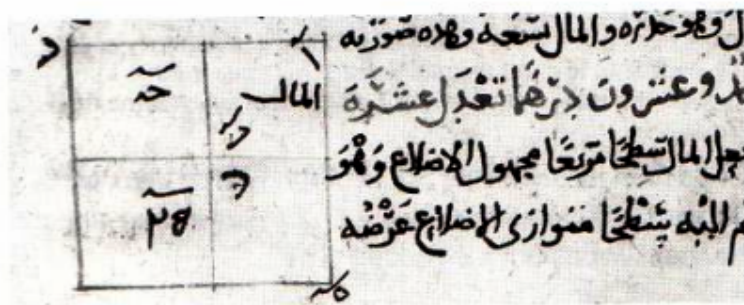 وهو جذره والمال تسعة وهذه صورته
وعشرون درهما تعدل عشرة
المال سطحا مربعا مجهول الاضلاع وهو
اليه سطحا متوازى الاضلاع عرضه
المال